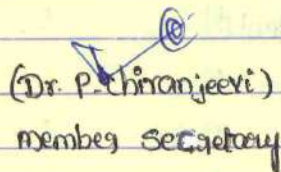 (Dr. P. Chiranjeevi)
member Secretary